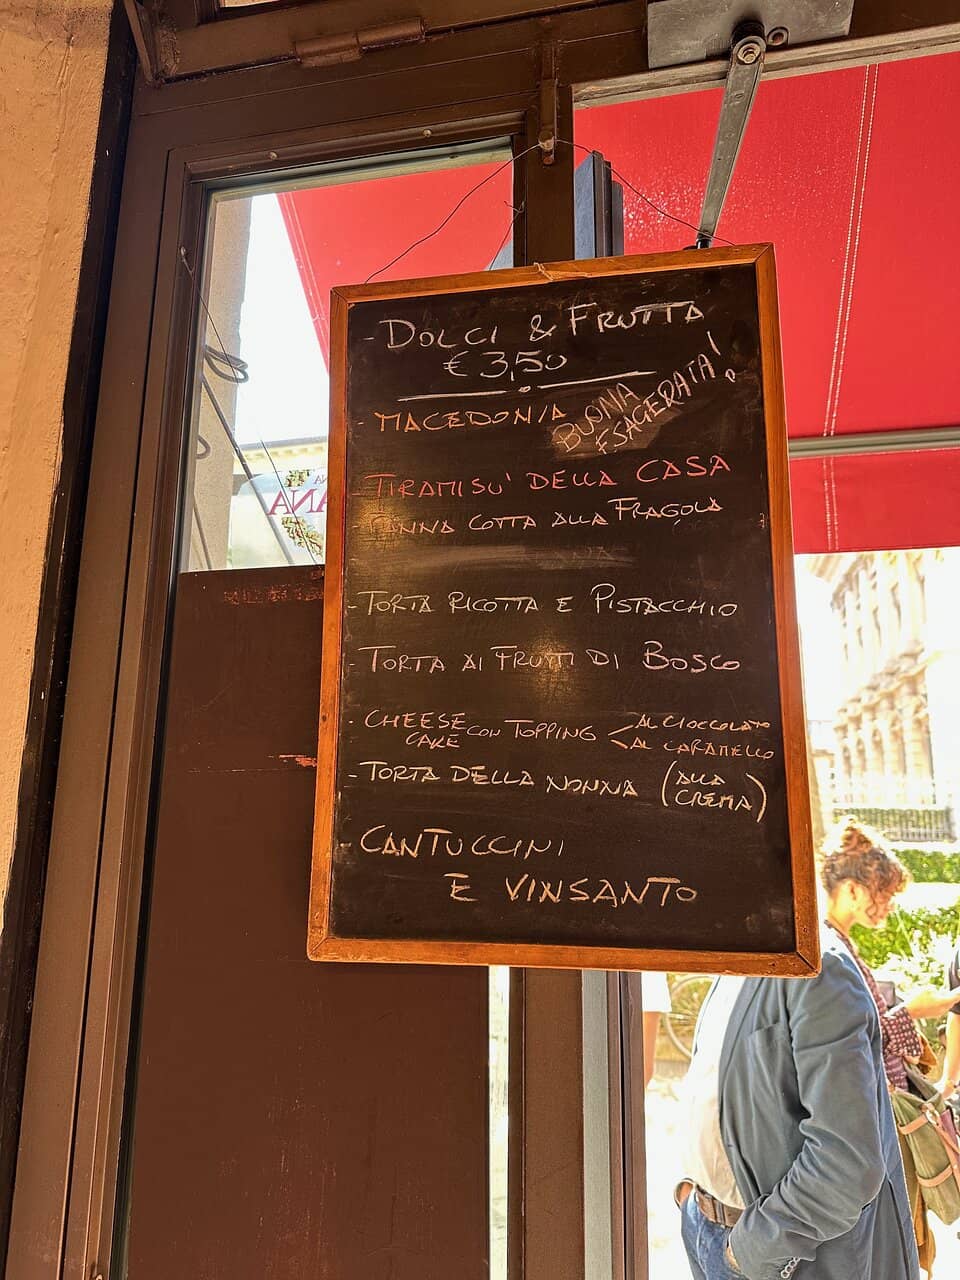 - DOLCI & FRUTTA
€ 3,50
- MACEDONIA
BUONA
ESAGERATA!
- TIRAMISU' DELLA CASA
- PANNA COTTA ALLA FRAGOLA
- TORTA RICOTTA E PISTACCHIO
- TORTA AI FRUTTI DI BOSCO
- CHEESE CAKE CON TOPPING
AL CIOCCOLATO
AL CARAMELLO
- TORTA DELLA NONNA (ALLA CREMA)
- CANTUCCINI
E VINSANTO